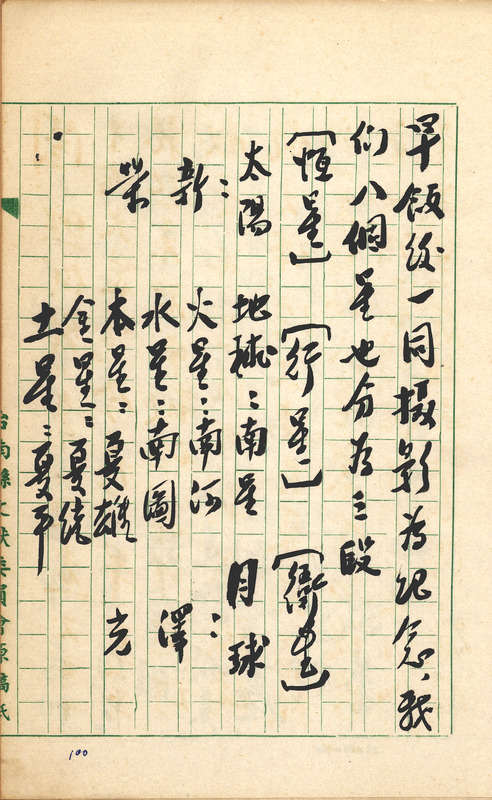 早飯後一同摄影為紀念，我
们八個星也分為三段
〔恆星〕 〔行星〕 〔衛星〕
太陽 地球：南星 月球
：新 火星：南河 ：澤
水星：南圖
榮 木星：夏雄 光
金星：夏統
土星：夏平
台南縣文獻委員會原稿紙
100